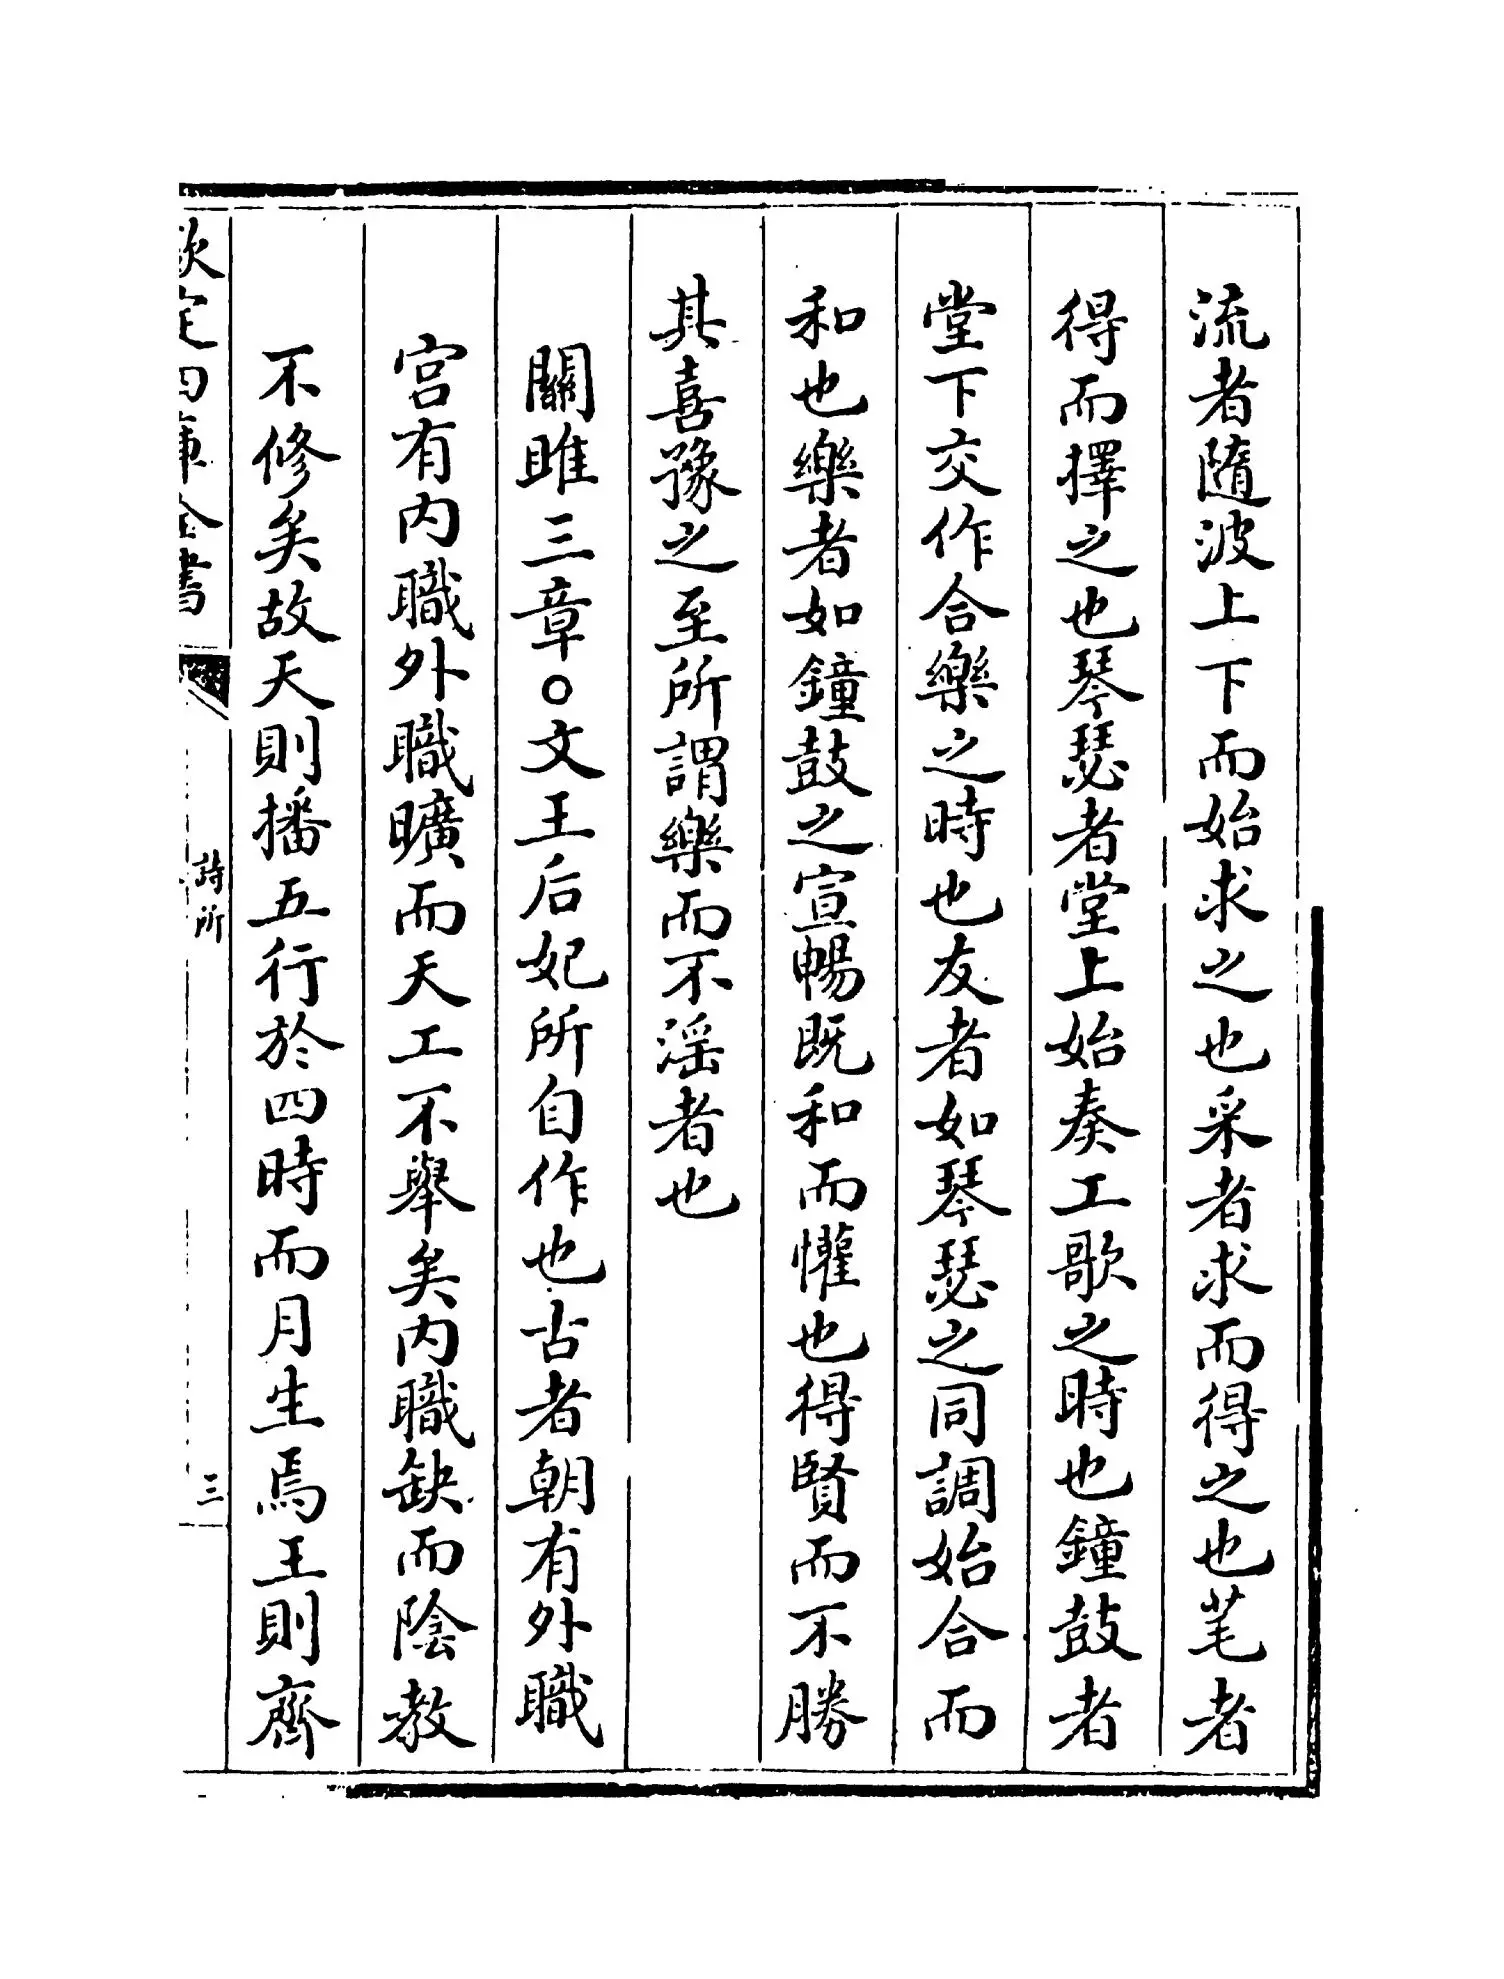 流者隨波上下而始求之也采者求而得之也芼者
得而擇之也琴瑟者堂上始奏工歌之時也鐘鼓者
堂下交作合樂之時也友者如琴瑟之同調始合而
和也樂者如鐘鼓之宣暢既和而懽也得賢而不勝
其喜豫之至所謂樂而不淫者也
關雎三章○文王后妃所自作也古者朝有外職
宮有內職外職曠而天工不舉矣內職缺而陰教
不修矣故天則播五行於四時而月生焉王則齊
欽定四庫全書
詩所
三